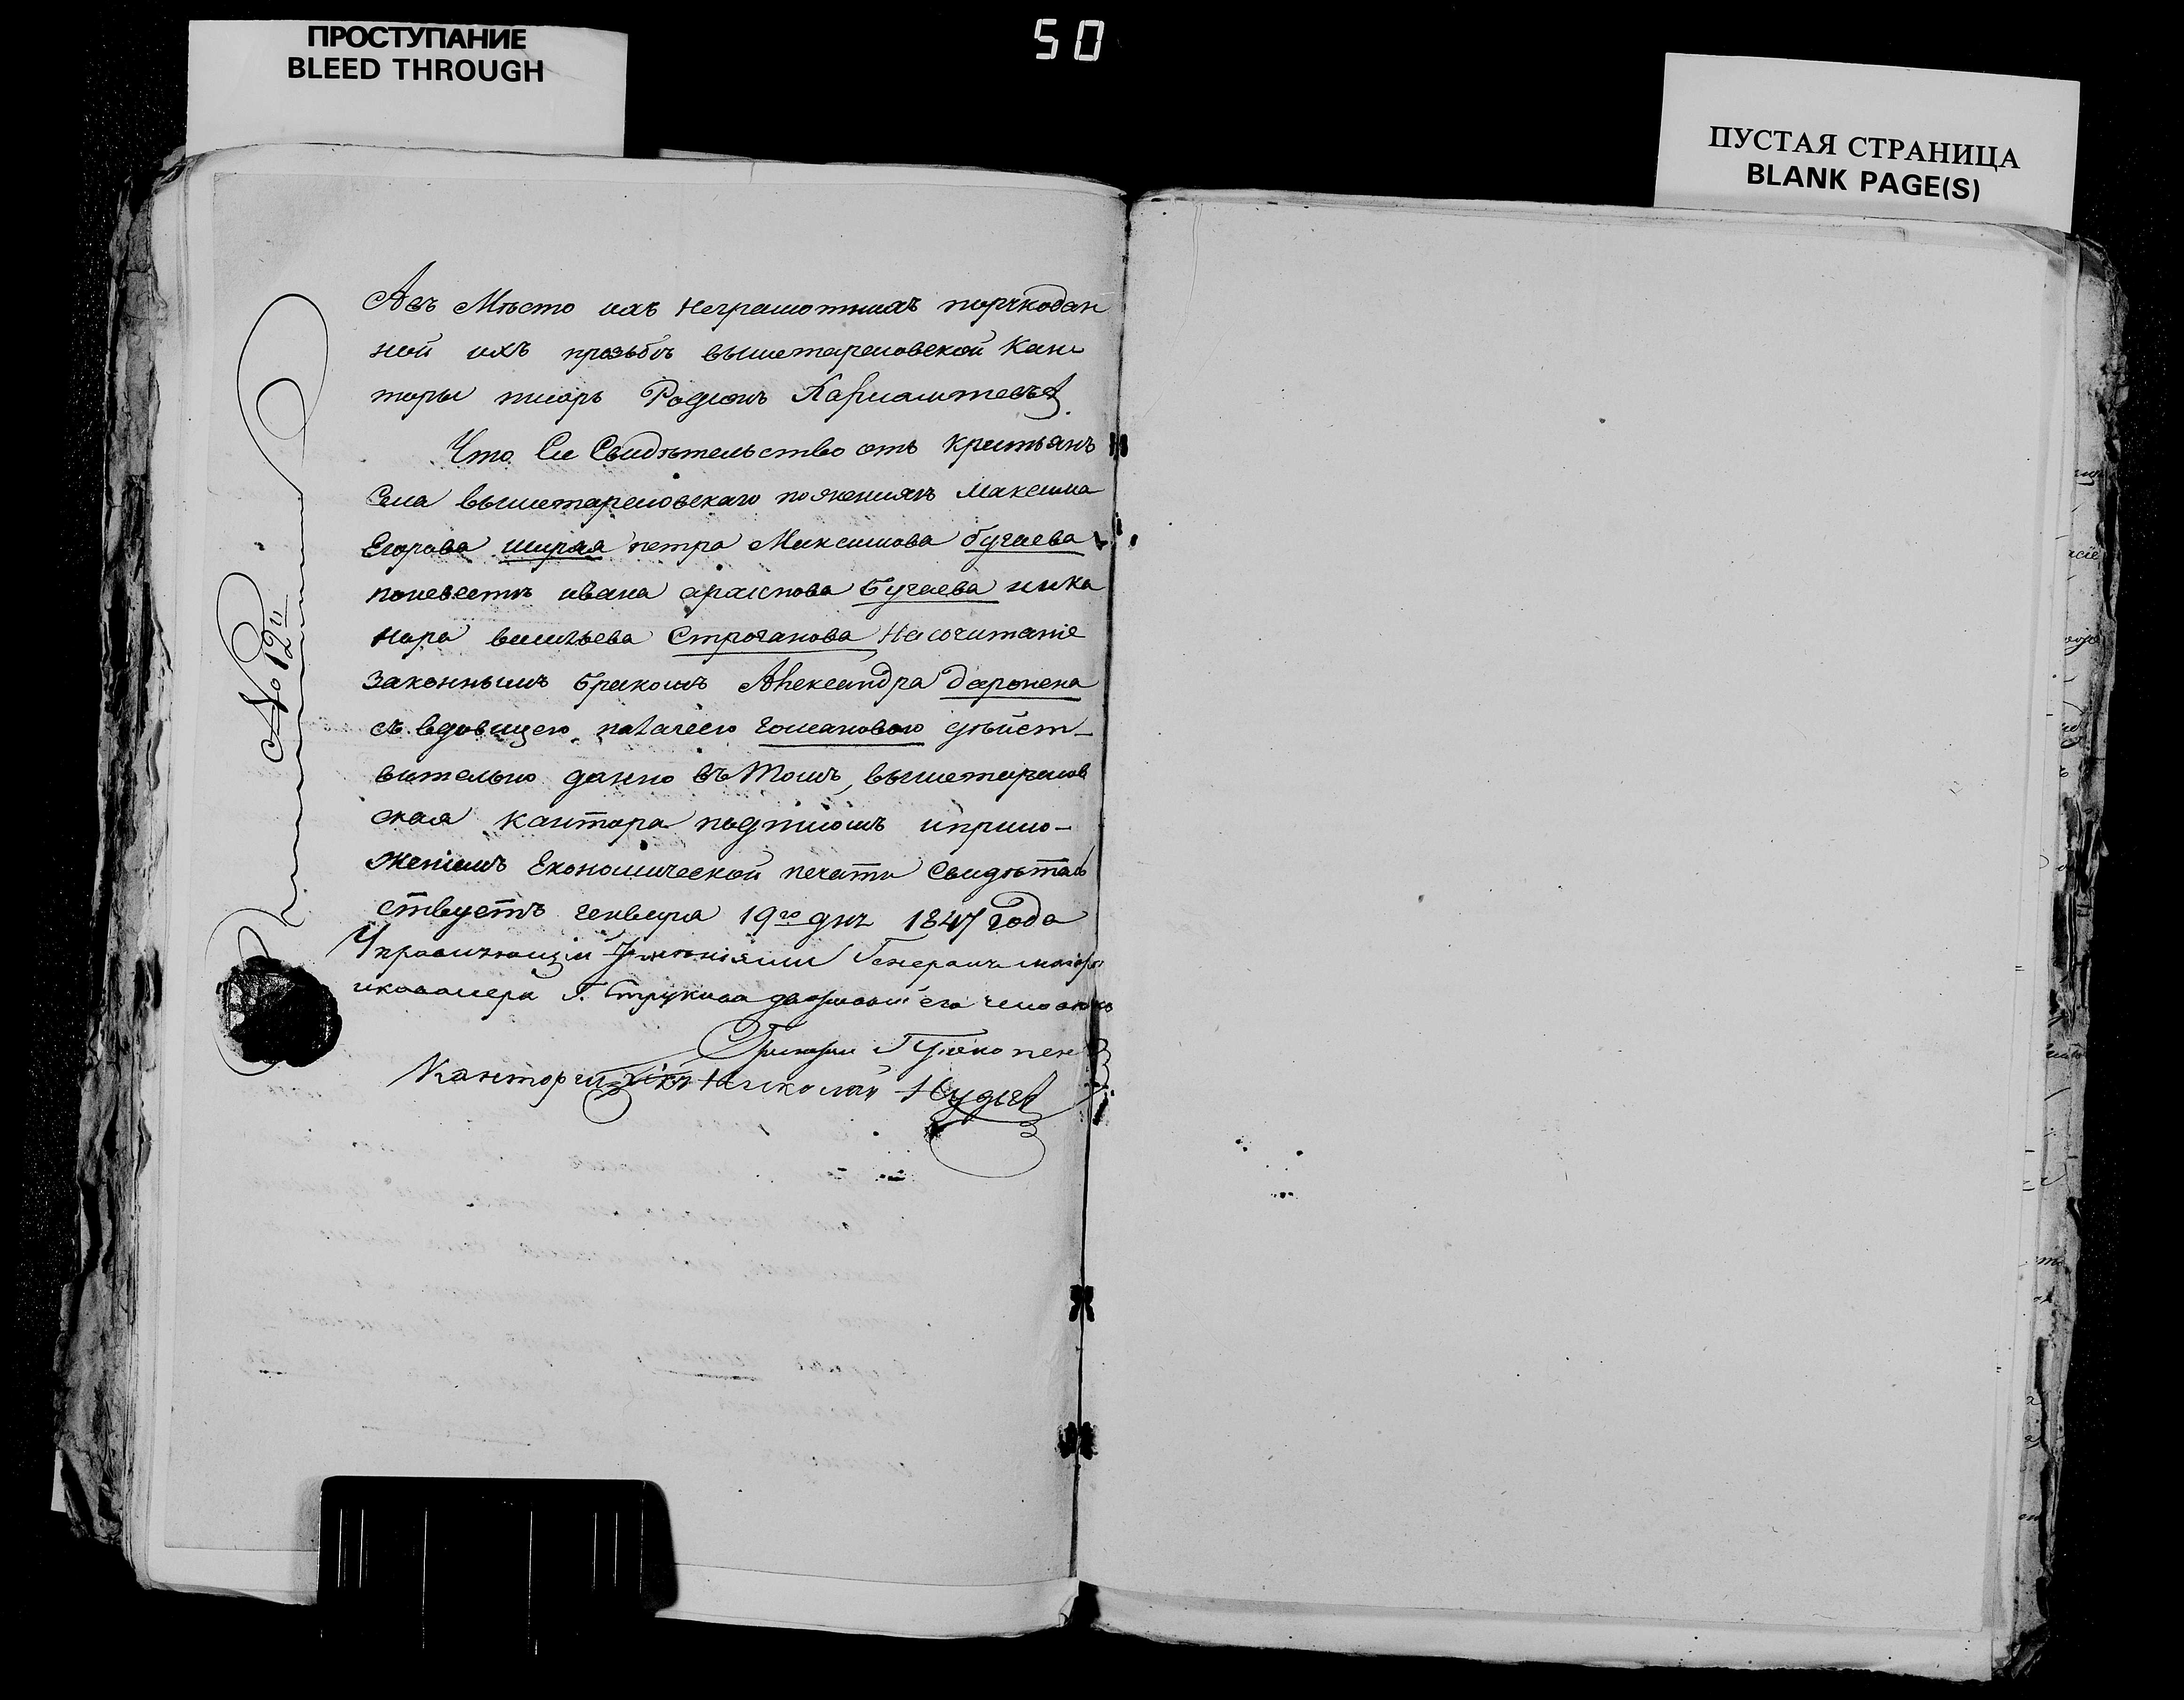 ПРОСТУПАНИЕ
BLEED THROUGH
50
ПУСТАЯ СТРАНИЦА
BLANK PAGE(S)
Авъ Мѣсто ихъ неграмотныхъ поручкодан
ной ихъ прозьбѣ вышетарасовской Кан
торы писарь Родионъ
Что Сие Свидѣтельство отъ крестьянъ
Села вышетарасовскаго поженихѣ Максима
Егорова ширая петра Максимова бугаева
поневестѣ ивана архипова бугаева ника
нора васильева Строганова На сочитание
Законнымъ бракомъ Александра даронена
съ вдовицею пелагеею гомановою дѣйст-
вительно данно въ томъ, вышетарасов
ская кантора подписомъ иприло-
жениемъ Економической печати Свидѣтель
ствуетъ генваря 19го дня 1847 года
Управляющий Имѣниями Генералъ маиора
икавалера Г. Струкова человекъ
Григорий
Николай
№ 12й